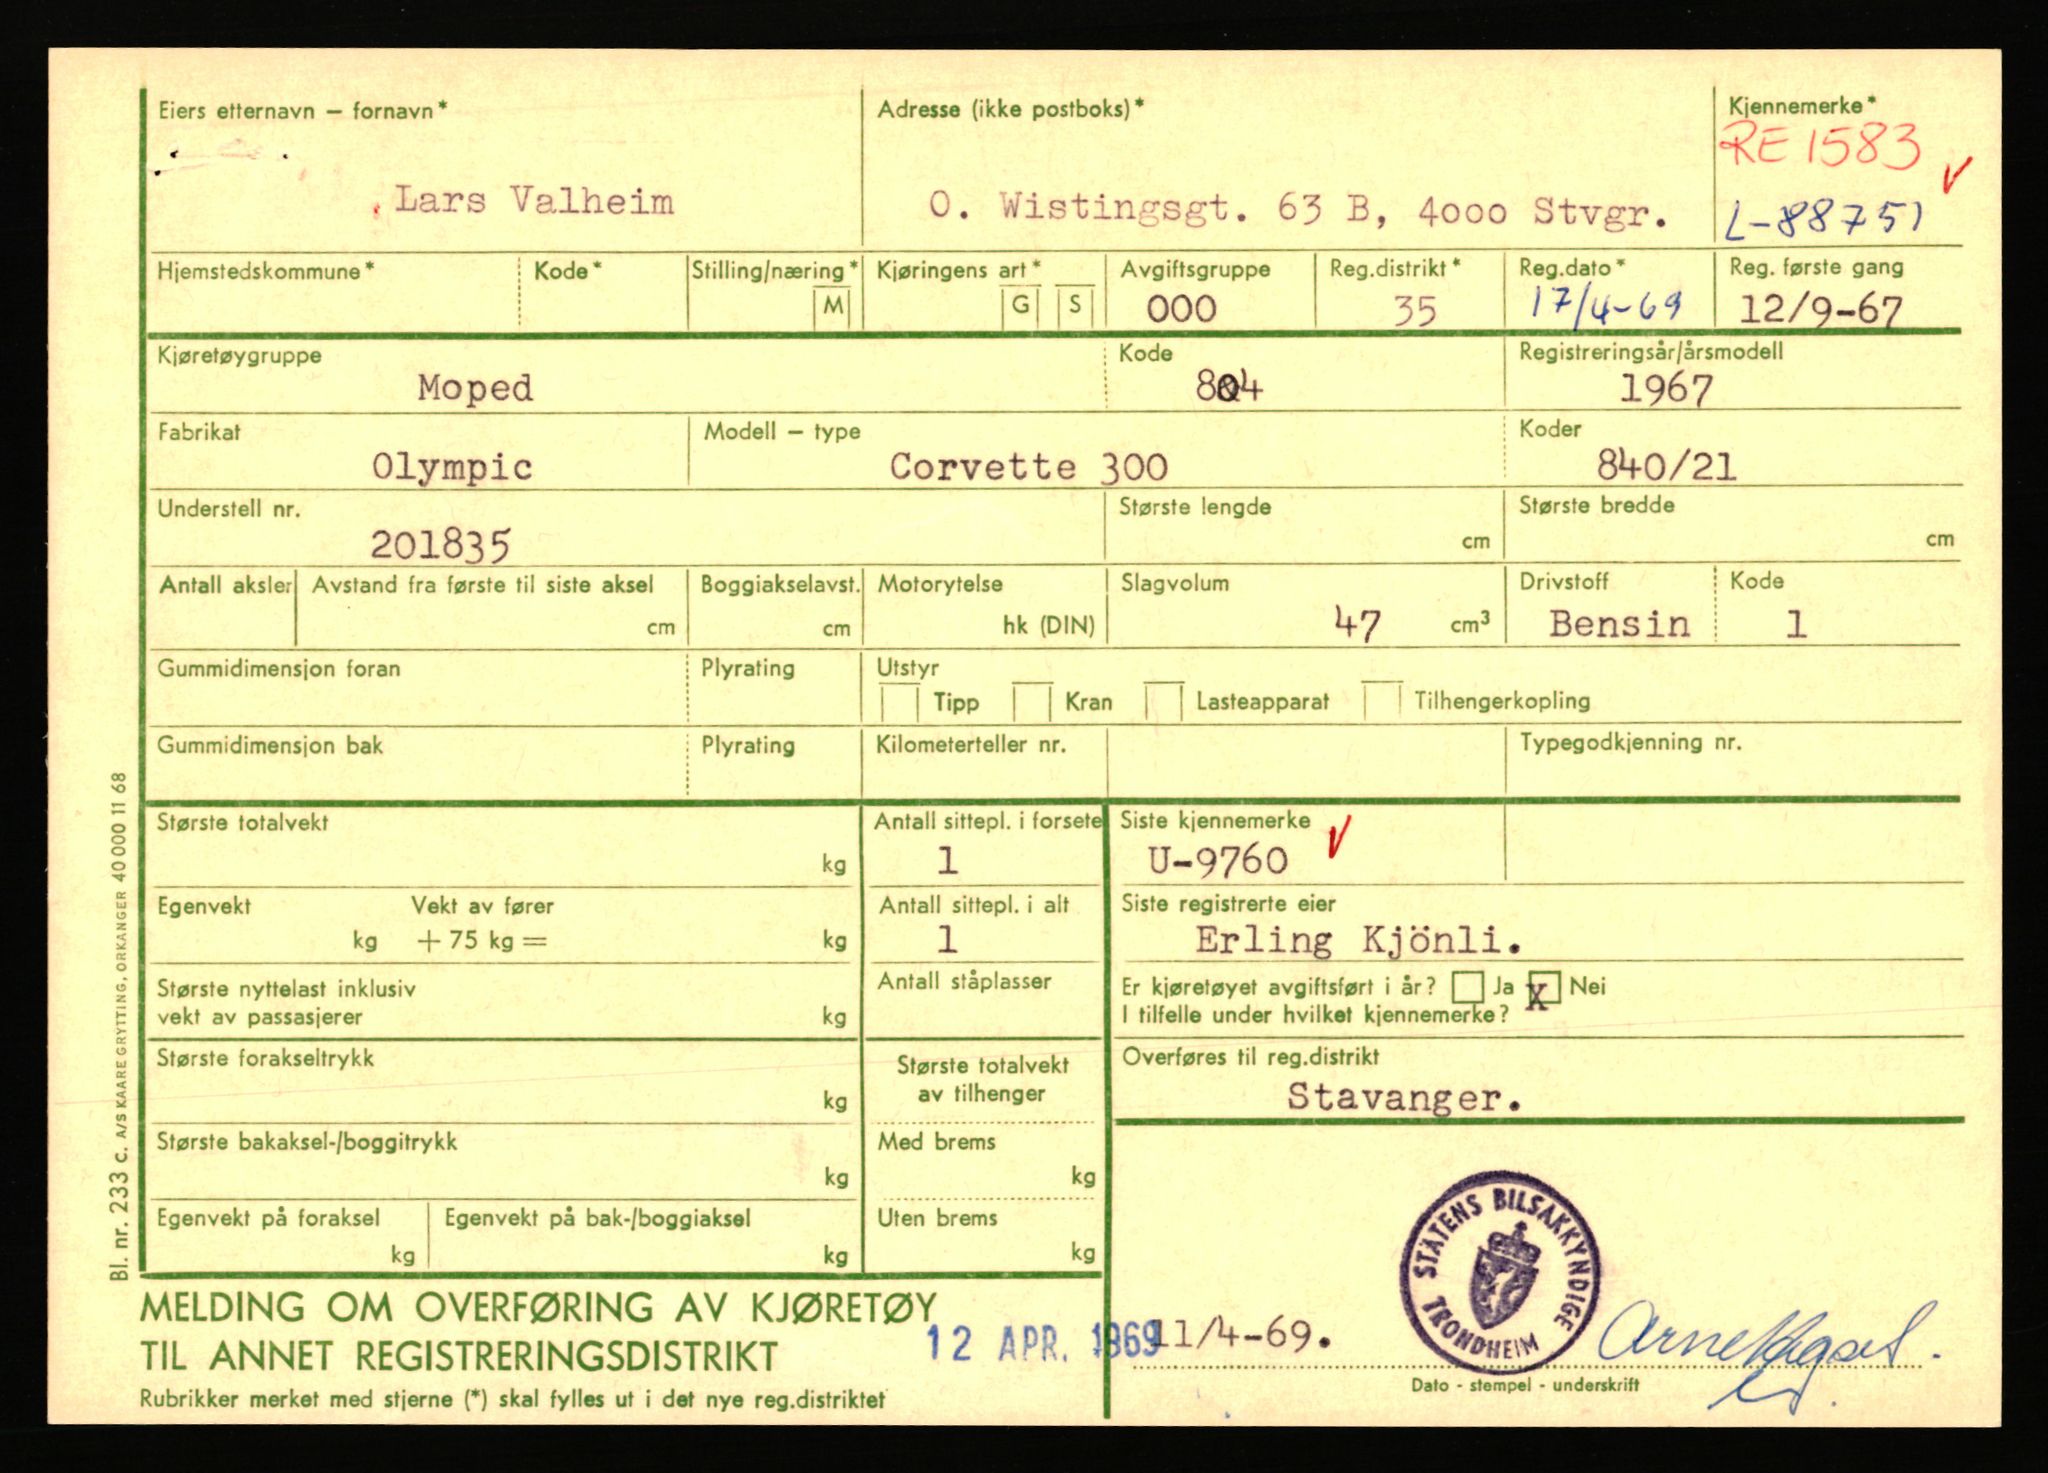 Eiers etternavn – fornavn*
Adresse (ikke postboks)*
Kjennemerke*
RE 1583
Lars Valheim
O. Wistingsgt. 63 B, 4000 Stvgr.
L-88751
Hjemstedskommune*
Kode*
Stilling/næring*
M
Kjøringens art*
G
S
Avgiftsgruppe
000
Reg.distrikt*
35
Reg.dato*
17/4-69
Reg. første gang
12/9-67
Kjøretøygruppe
Moped
Kode
804
Registreringsår/årsmodell
1967
Fabrikat
Olympic
Modell – type
Corvette 300
Koder
840/21
Understell nr.
201835
Største lengde
cm
Største bredde
cm
Antall aksler
Avstand fra første til siste aksel
cm
Boggiakselavst.
cm
Motorytelse
hk (DIN)
Slagvolum
47 cm³
Drivstoff
Bensin
Kode
1
Gummidimensjon foran
Plyrating
Utstyr
Tipp
Kran
Lasteapparat
Tilhengerkopling
Gummidimensjon bak
Plyrating
Kilometerteller nr.
Typegodkjenning nr.
Største totalvekt
kg
Antall sittepl. i forsete
1
Siste kjennemerke
U-9760
Egenvekt
kg
Vekt av fører
+ 75 kg =
kg
Antall sittepl. i alt
1
Siste registrerte eier
Erling Kjönli.
Største nyttelast inklusiv
vekt av passasjerer
kg
Antall ståplasser
Er kjøretøyet avgiftsført i år? Ja X Nei
I tilfelle under hvilket kjennemerke?
Største forakseltrykk
kg
Største totalvekt
av tilhenger
Overføres til reg.distrikt
Stavanger.
Største bakaksel-/boggitrykk
kg
Med brems
kg
Egenvekt på foraksel
kg
Egenvekt på bak-/boggiaksel
kg
Uten brems
kg
MELDING OM OVERFØRING AV KJØRETØY
TIL ANNET REGISTRERINGSDISTRIKT
Rubrikker merket med stjerne (*) skal fylles ut i det nye reg.distriktet
12 APR. 1969
11/4-69.
STATENS BILSAKKYNDIGE
TRONDHEIM
Arne
Dato - stempel - underskrift
Bl. nr. 233 c. A/S KAARE GRYTTING, ORKANGER 40 000 11 68